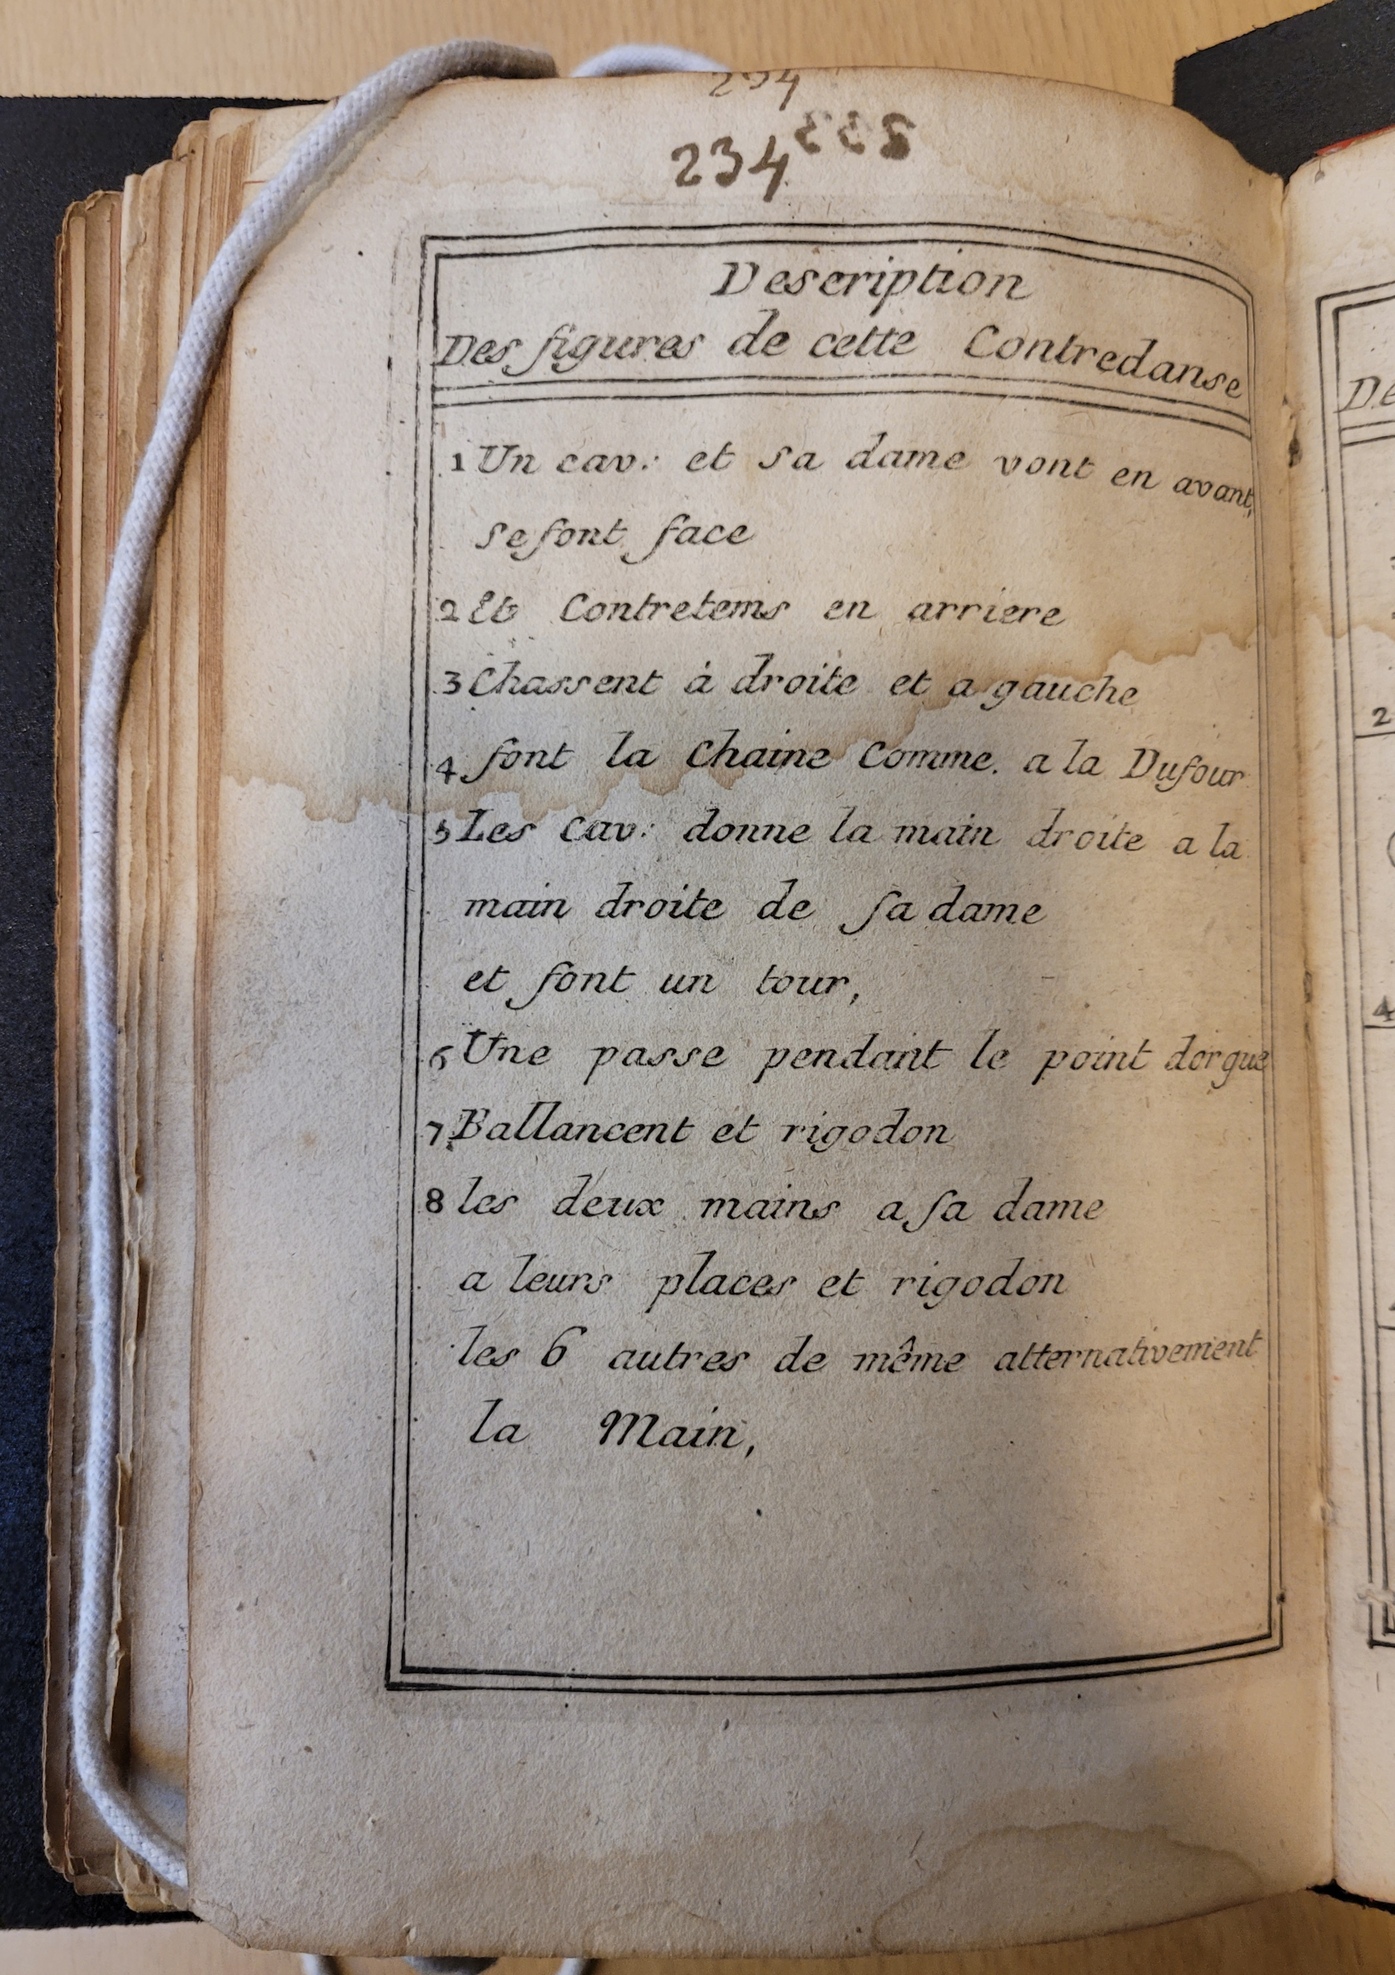 234
234
Description
Des figures de cette Contredanse
1 Un cav: et sa dame vont en avant,
se font face
2 Et Contretems en arriere
3 Chassent à droite et a gauche
4 font la Chaine Comme a la Dufour
5 Les cav: donne la main droite a la
main droite de sa dame
et font un tour,
6 Une passe pendant le point dorgue
7 Ballancent et rigodon
8 les deux mains a sa dame
a leurs places et rigodon
les 6 autres de même alternativement
la Main,
2
4